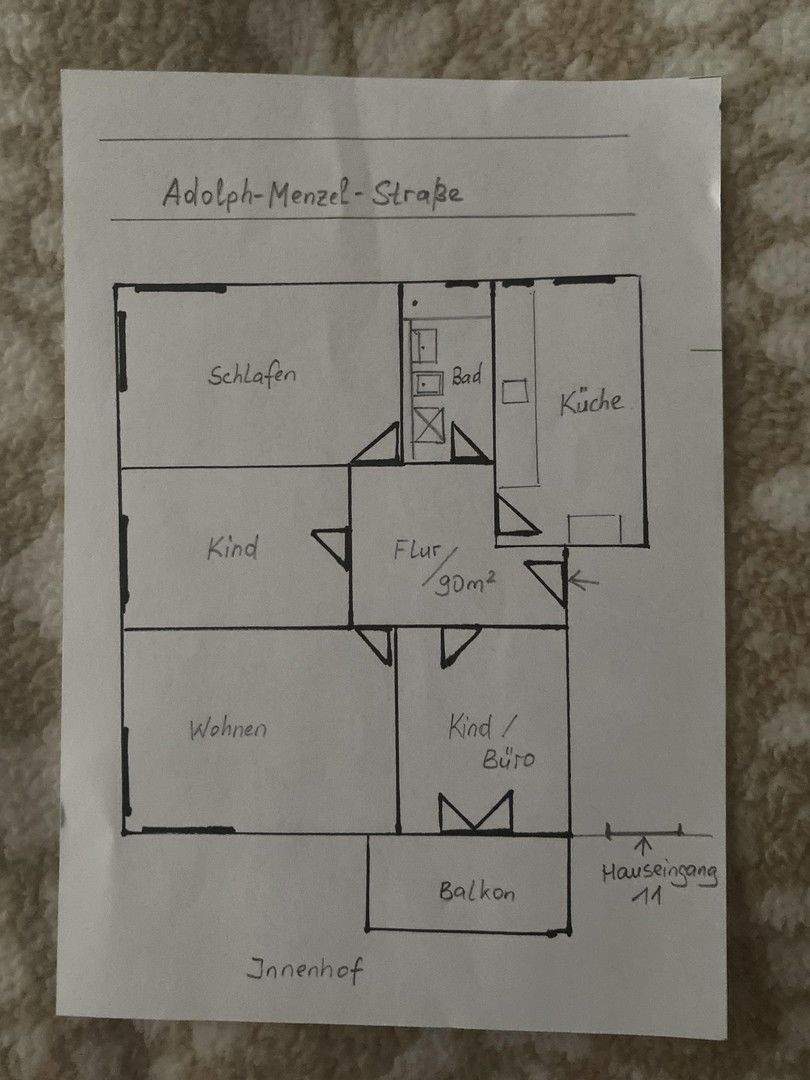 Adolph-Menzel-Straße
Schlafen
Bad
Küche
Kind
Flur/
90m²
Wohnen
Kind/
Büro
Hauseingang
11
Balkon
Innenhof